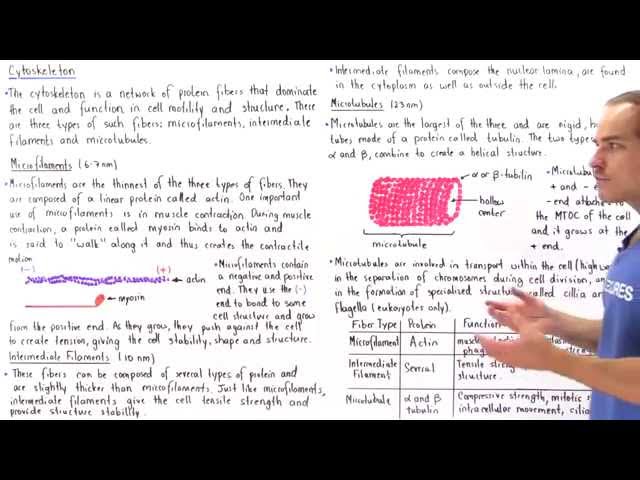 Cytoskeleton
• The cytoskeleton is a network of protein fibers that dominate
the cell and function in cell motility and structure. There
are three types of such fibers: microfilaments, intermediate
filaments and microtubules.
Microfilaments (6-7nm)
• Microfilaments are the thinnest of the three types of fibers. They
are composed of a linear protein called actin. One important
use of microfilaments is in muscle contraction. During muscle
contraction, a protein called myosin binds to actin and
is said to "walk" along it and thus creates the contractile
motion
(-)
(+)
actin
myosin
• Microfilaments contain
a negative and positive
end. They use the (-)
end to bond to some
cell structure and grow
from the positive end. As they grow, they push against the cell
to create tension, giving the cell stability, shape and structure.
Intermediate Filaments (10nm)
• These fibers can be composed of several types of protein and
are slightly thicker than microfilaments. Just like microfilaments,
intermediate filaments give the cell tensile strength and
provide structure stability.
• Intermediate filaments compose the nuclear lamina, are found
in the cytoplasm as well as outside the cell.
Microtubules (23nm)
• Microtubules are the largest of the three and are rigid,
tubes made of a protein called tubulin. The two
α and β, combine to create a helical structure.
α or β-tubilin
hollow
center
microtubule
• Microtubul
+ and -
-end attache
the MTOC of the cell
and it grows at the
+ end.
• Microtubules are involved in transport within the cell
in the separation of chromosomes during cell division,
in the formation of specialized structures called cillia
Flagella (eukaryotes only).
Fiber Type Protein Function
Microfilament Actin
Intermediate Filament Several Tensile structure.
Microtubule α and β tubulin Compressive strength, mitotic intracellular movement,
URES